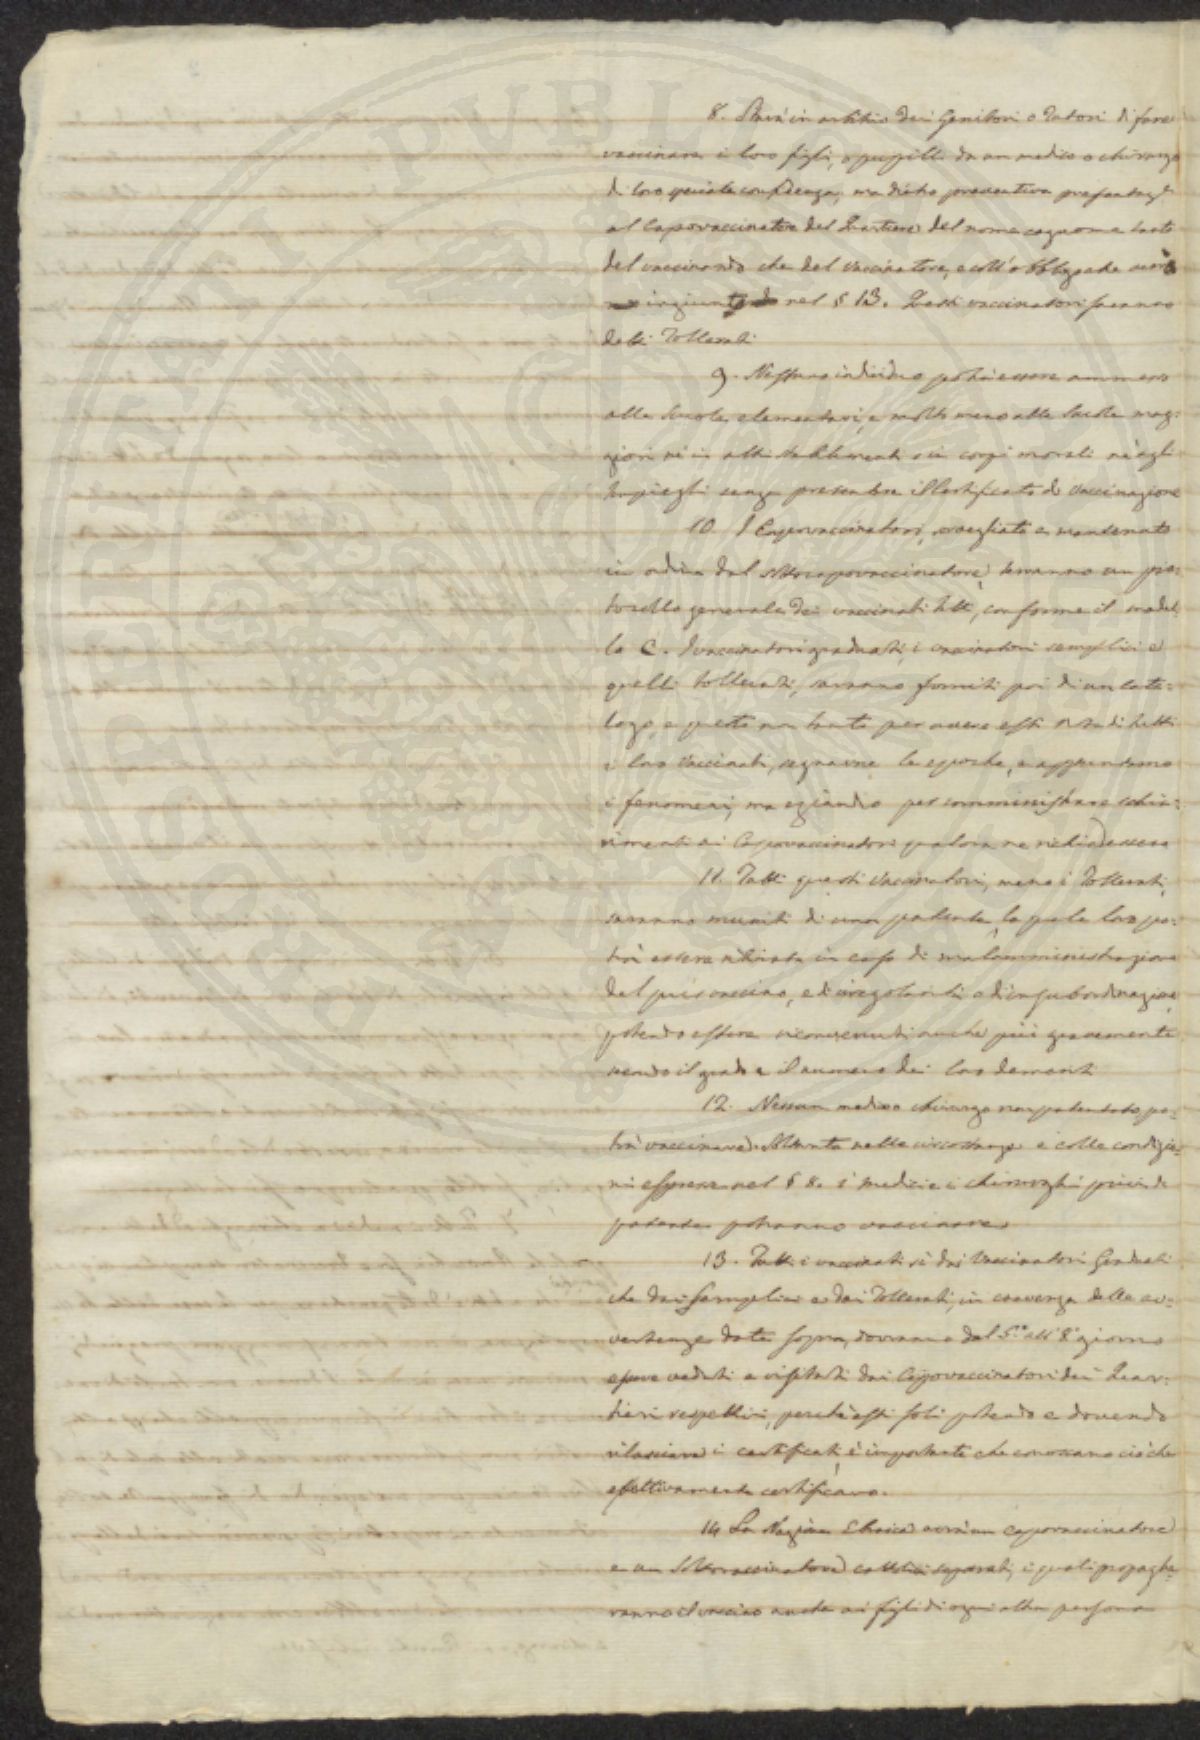 8. Starà in arbitrio dei Genitori o Tutori di fare
vaccinare i loro figli, o pupilli da un medico o chirurgo
di loro speciale confidenza, ma dietro preventiva
al Capovaccinatore del Quartiere del nome cognome tanto
del vaccinando che del vaccinatore, e coll'obbligo che
ingiunto nel § 13. Questi vaccinatori saranno
detti Tollerati
9. Nessun individuo potrà essere ammesso
alle Scuole elementari, e molto meno alle Scuole mag:
giori nè in altri stabilimenti o in corpi morali nè agli
Impieghi senza presentare il certificato di vaccinazione
10. I Capovaccinatori, svegliati e mantenuti
in ordine dal Sottocapovaccinatore, terranno un pro:
tocollo generale dei vaccinati tutti, conforme il model:
lo C. I vaccinatori graduati, i vaccinatori semplici e
quelli tollerati, saranno forniti poi di un cata:
logo, e questo non tanto per avere essi nota di tutti
i loro vaccinati, segnarne le epoche, e apprenderne
i fenomeni, ma eziandio per somministrare schia:
rimenti ai Capovaccinatori qualora ne richiedessero
11. Tutti questi Vaccinatori, meno i Tollerati,
saranno muniti di una patente, la quale loro po:
trà essere ritirata in caso di malamministrazione
del pus vaccino, e di irregolarità, o d'insubordinazione,
potendo essere riconvenuti anche più gravemente
secondo il grado e il numero dei loro demeriti
12. Nessun medico chirurgo non patentato po:
trà vaccinare. Soltanto nelle circostanze e colle condizio:
ni espresse nel § 8. i medici e i chirurghi privi di
patente potranno vaccinare.
13. Tutti i vaccinati sì dai Vaccinatori Graduati
che dai Semplici e dai Tollerati, in coerenza delle av:
vertenze date sopra, dovranno dal 5.º all' 8.º giorno
essere veduti e visitati dai Capovaccinatori dei Quar:
tieri respettivi, perchè essi soli potendo e dovendo
rilasciare i certificati, è importante che conoscano ciò che
effettivamente certificano.
14 La Nazione Ebraica avrà un Capovaccinatore
e un Sottovaccinatore separati, i quali propaghe:
ranno il vaccino anche ai figli di ogni altra persona